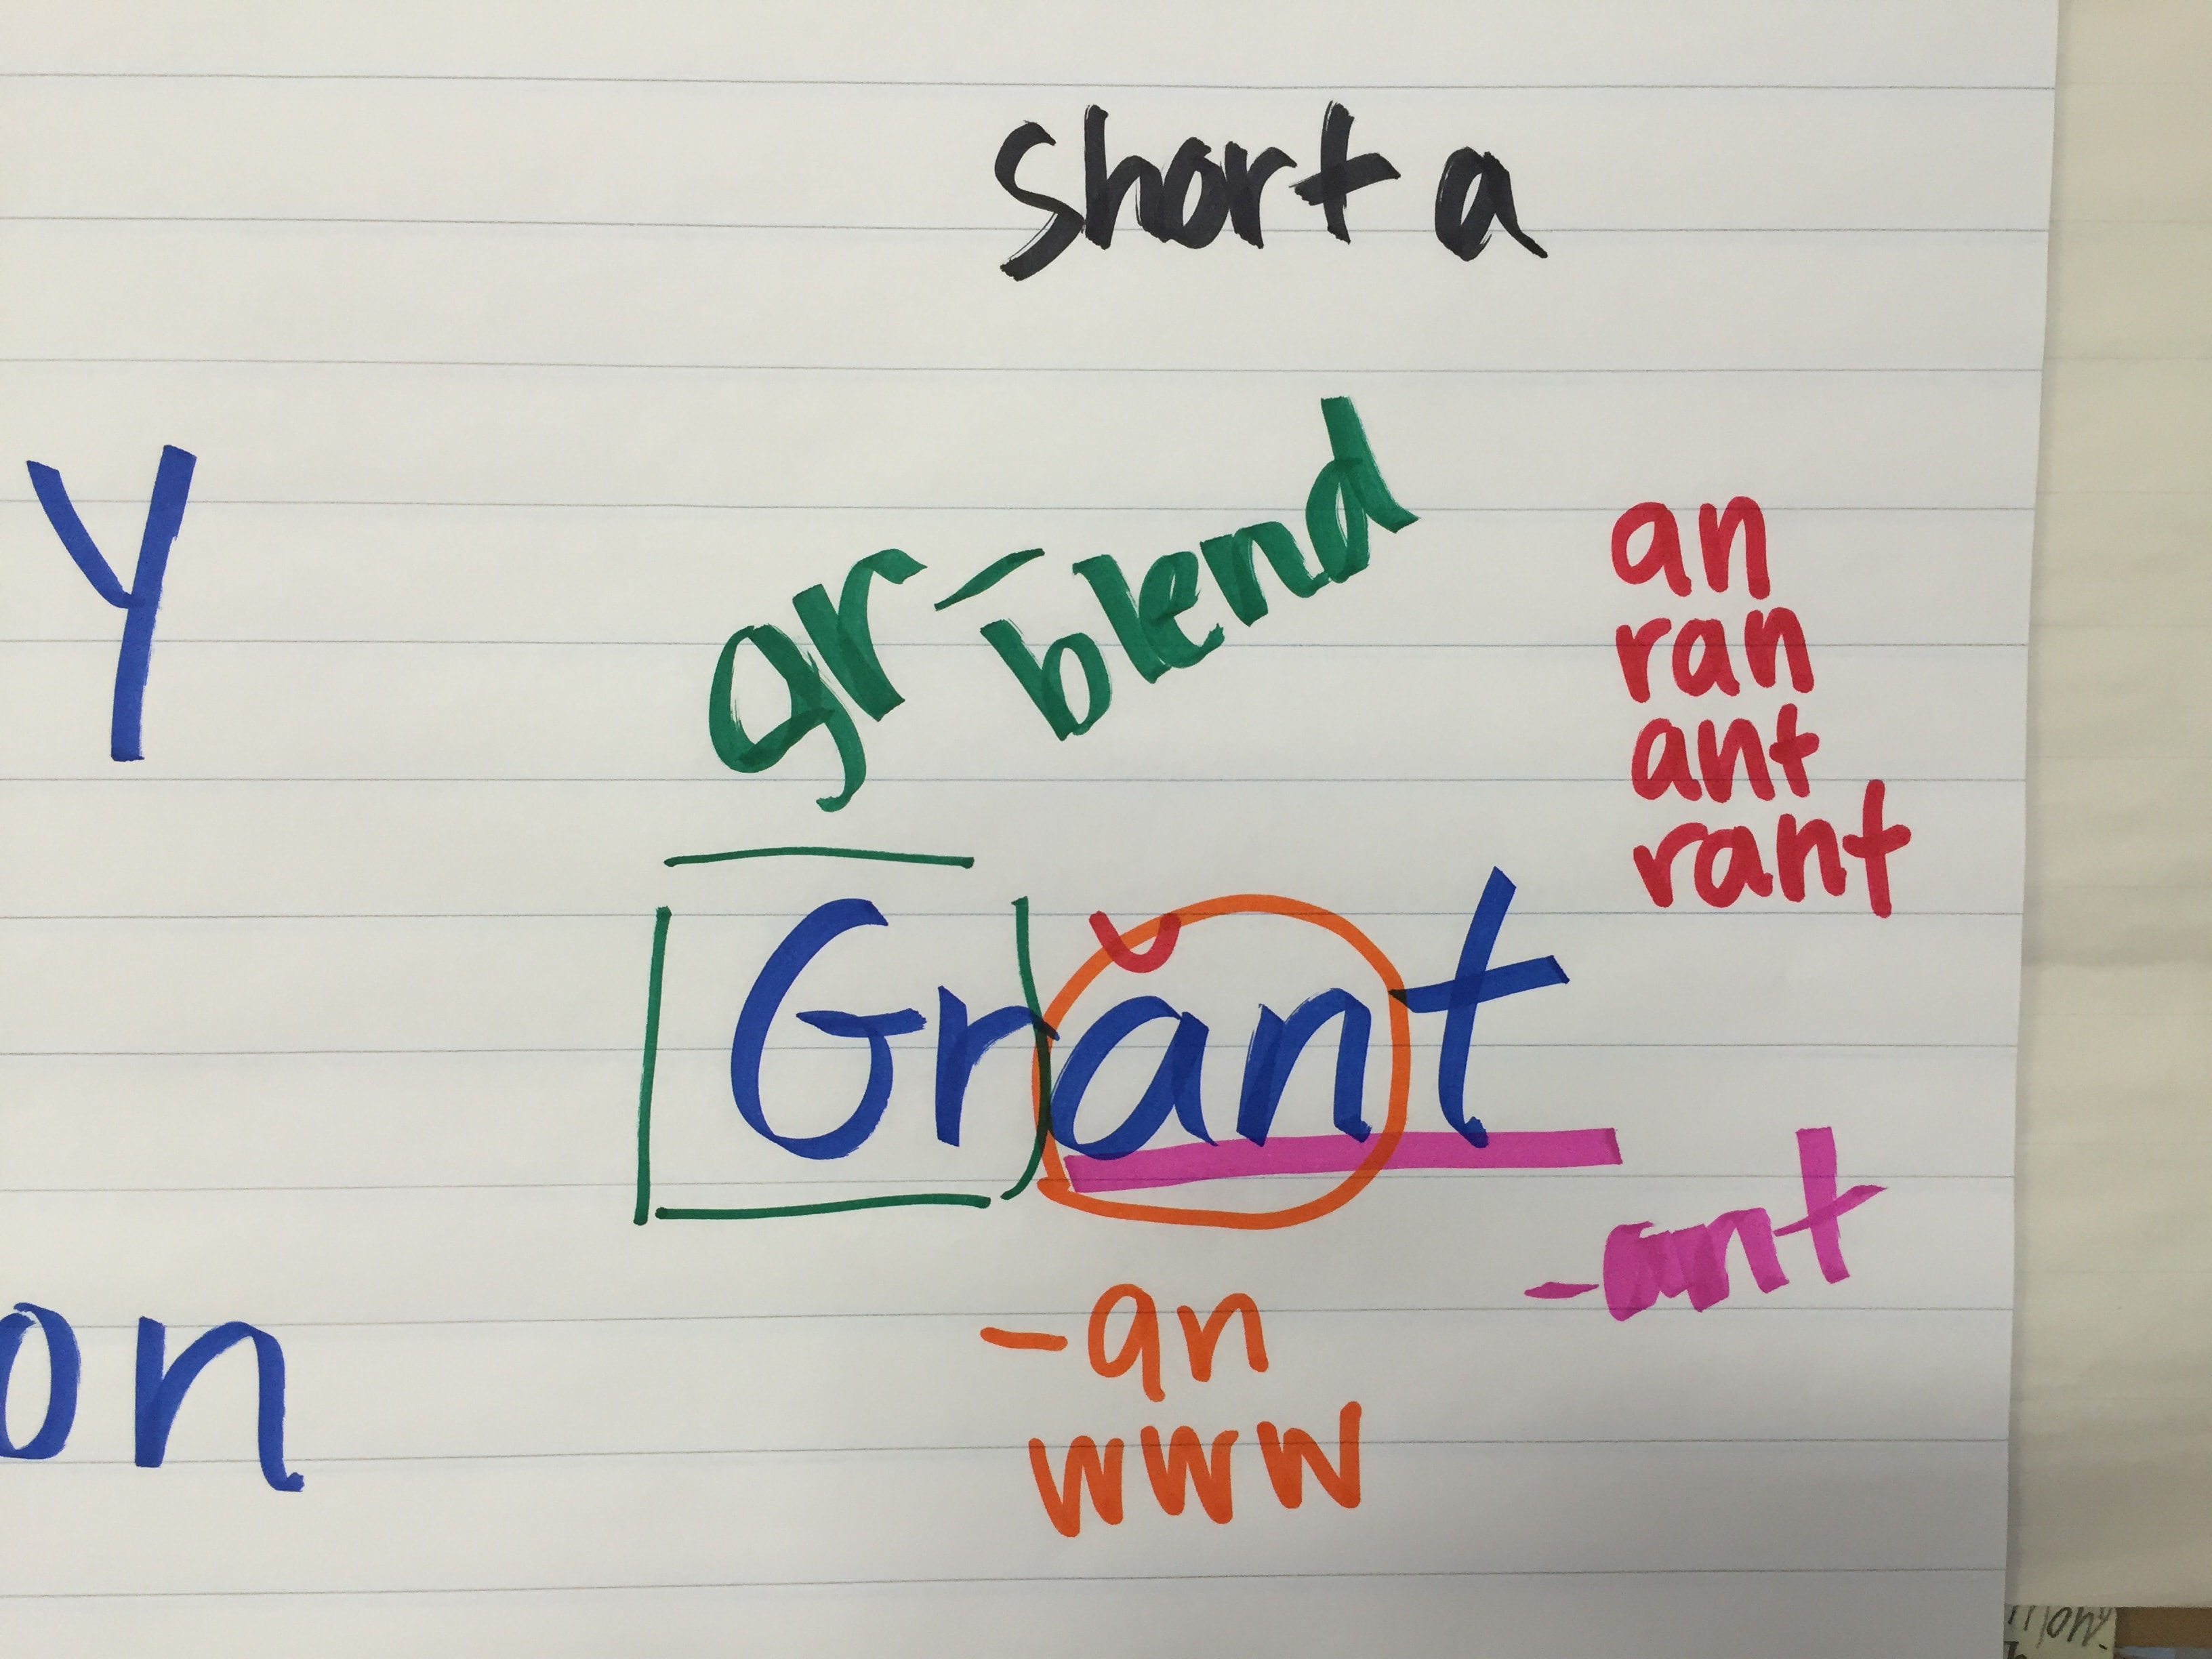 short a
Y
gr-
blend
an
ran
ant
rant
Grănt
-ant
-an
on
www